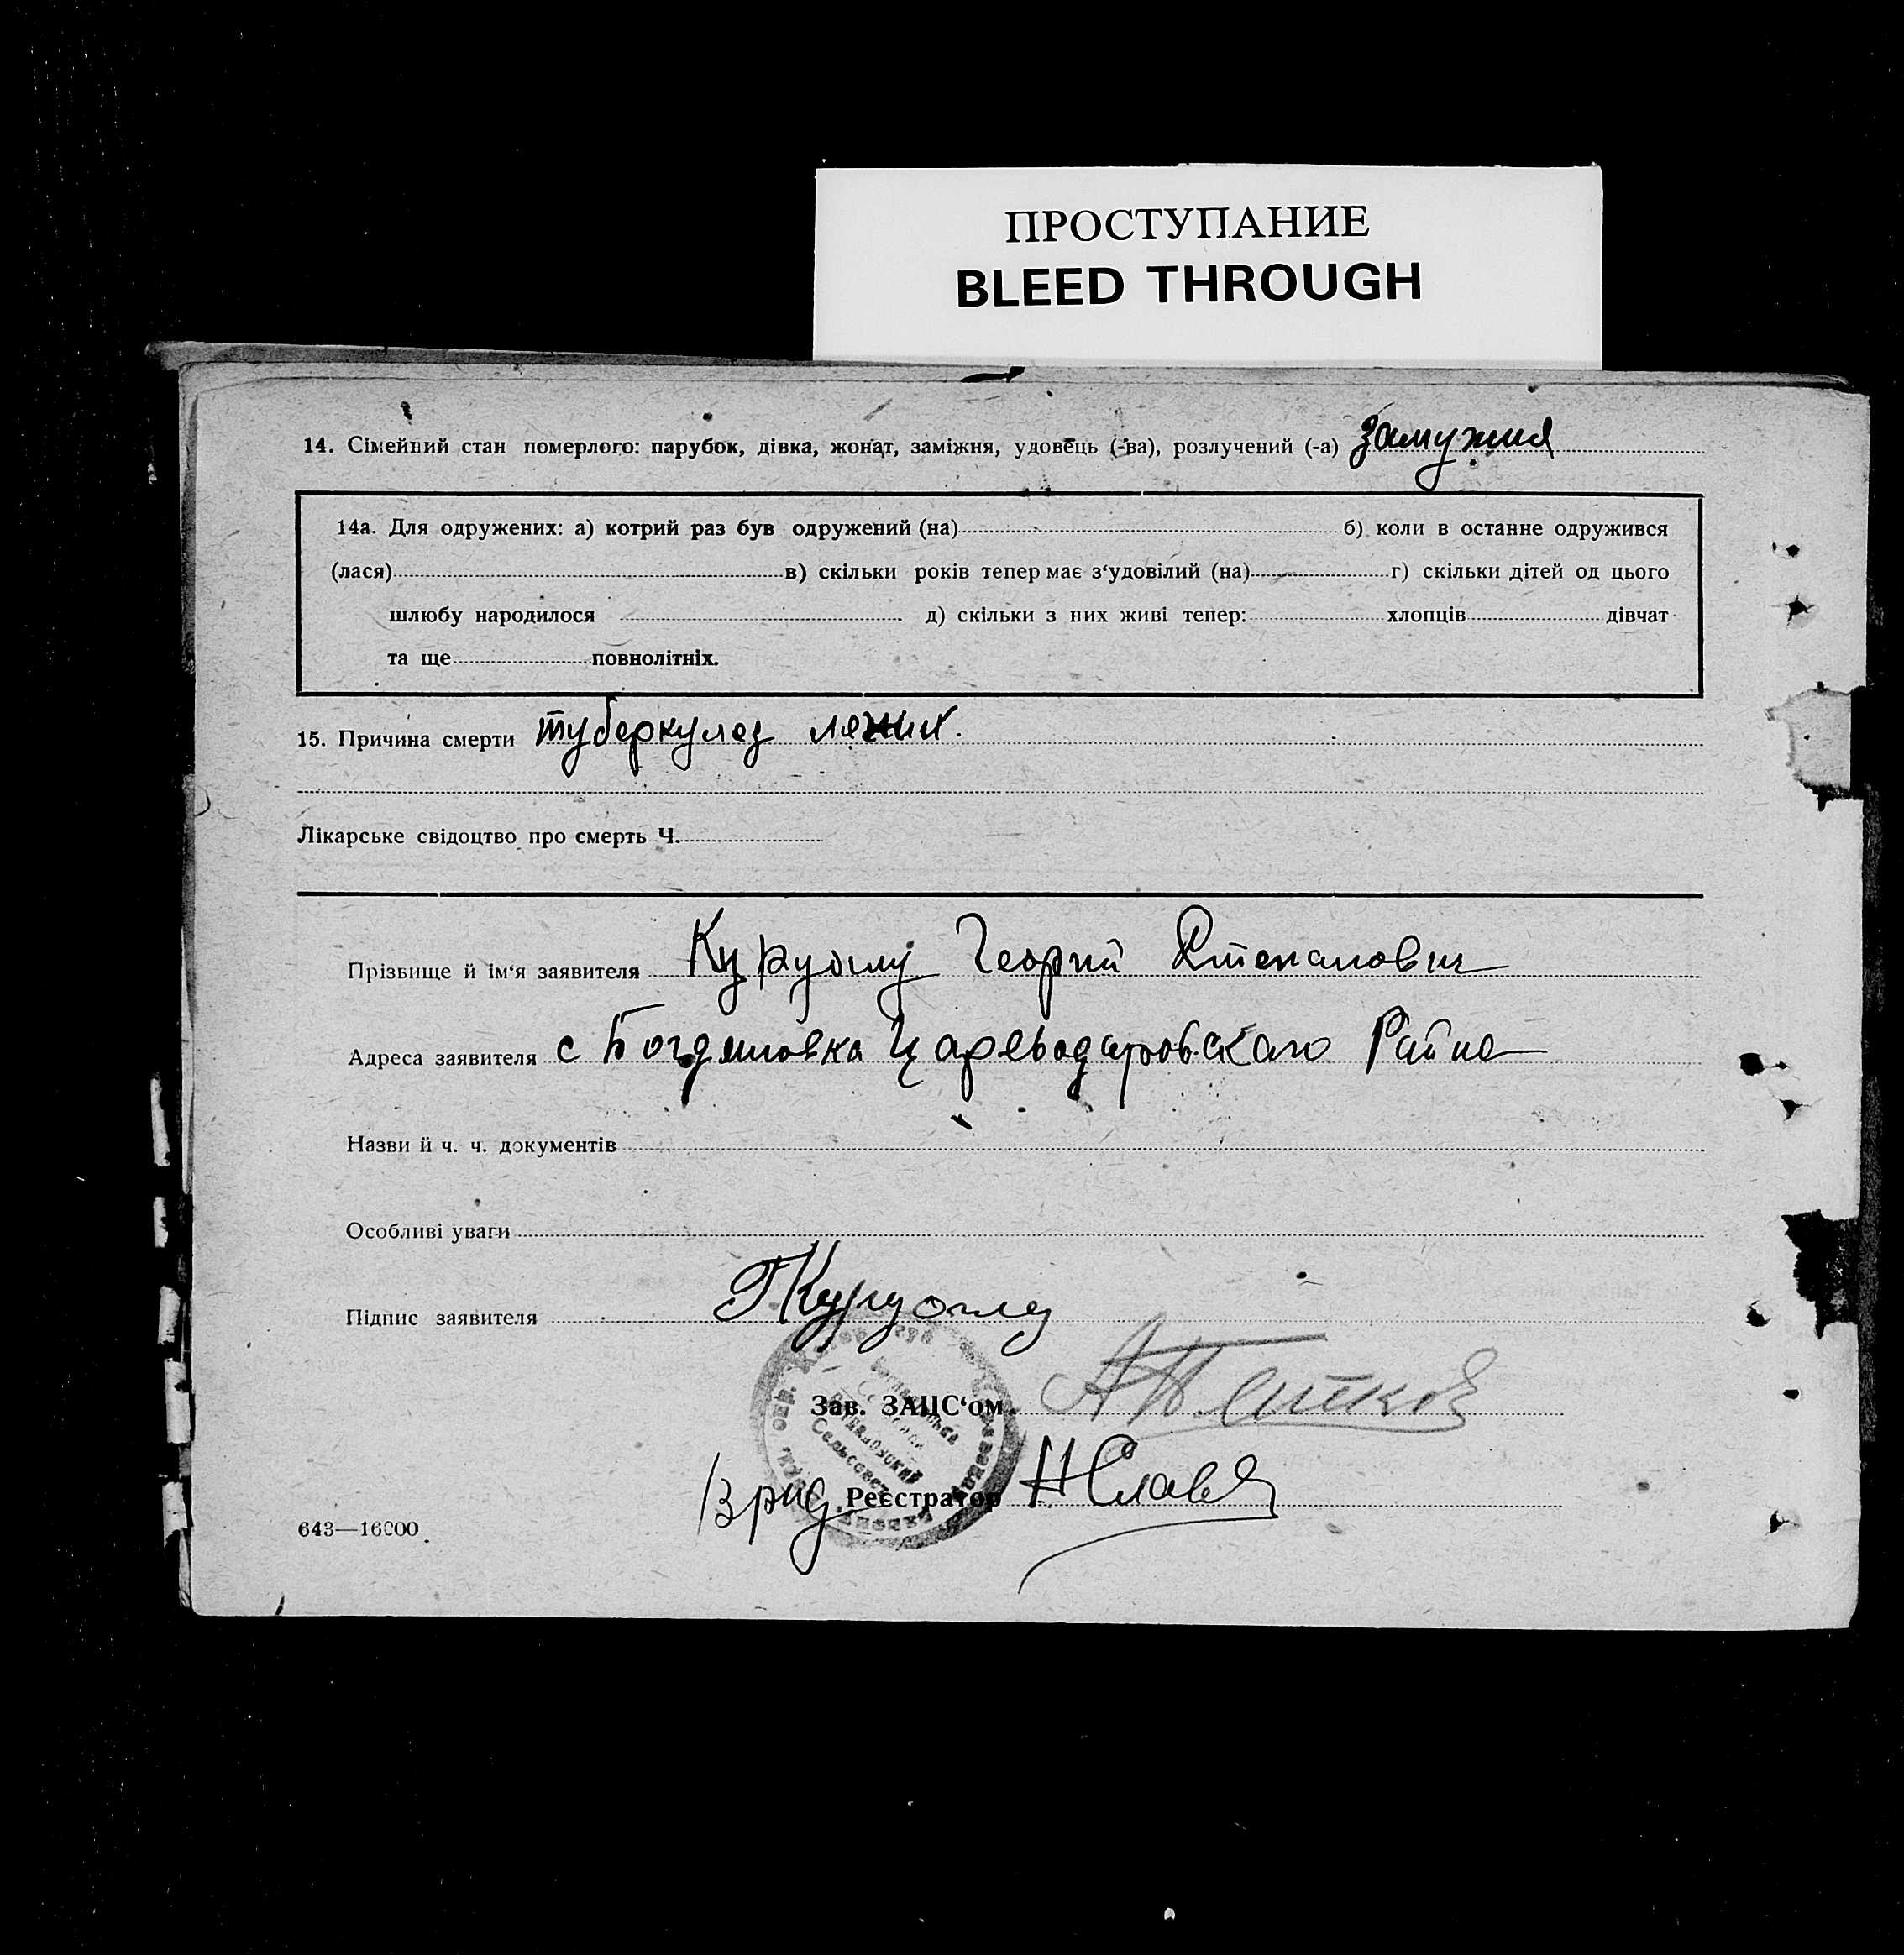 ПРОСТУПАНИЕ
BLEED THROUGH
14. Сімейний стан померлого: парубок, дівка, жонат, заміжня, удовець (-ва), розлучений (-а) замужния
14а. Для одружених: а) котрий раз був одружений (на) б) коли в останнє одружився
(лася) в) скільки років тепер має з‘удовілий (на) г) скільки дітей од цього
шлюбу народилося д) скільки з них живі тепер: хлопців дівчат
та ще повнолітніх.
15. Причина смерти туберкулез
Лікарське свідоцтво про смерть Ч.
Прізвище й ім‘я заявителя Курудогlу Георгий Степанович
Адреса заявителя с Богдановка Цареводаровского Района
Назви й ч. ч. документів
Особливі уваги
Підпис заявителя
Зав. ЗАЦС‘ом
Врид Реєстратор Н Славов
643—16000